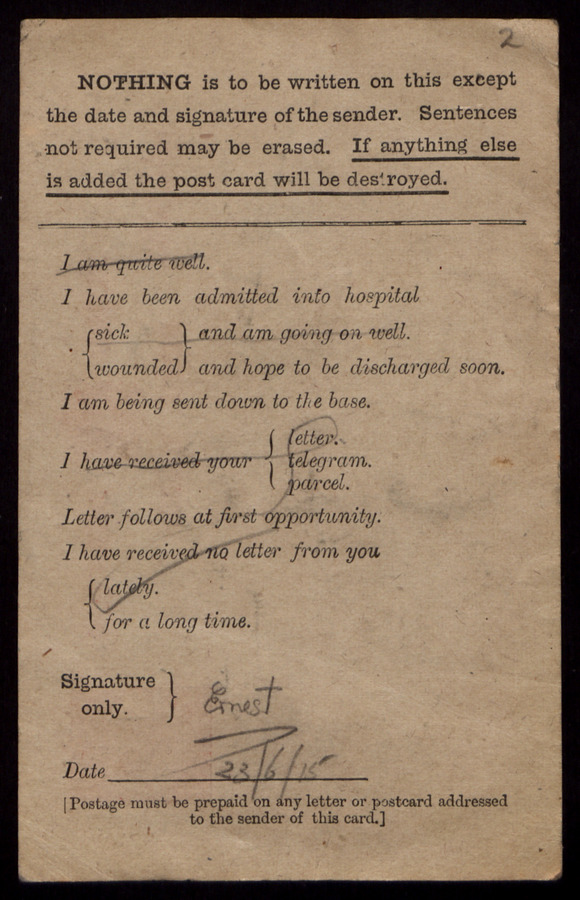 2
NOTHING is to be written on this except
the date and signature of the sender. Sentences
not required may be erased. If anything else
is added the post card will be destroyed.
I am quite well.
I have been admitted into hospital
sick and am going on well.
wounded and hope to be discharged soon.
I am being sent down to the base.
letter.
I have received your telegram.
parcel.
Letter follows at first opportunity.
I have received no letter from you
lately.
for a long time.
Signature
only. Ernest
Date 23/6/15
[Postage must be prepaid on any letter or postcard addressed
to the sender of this card.]